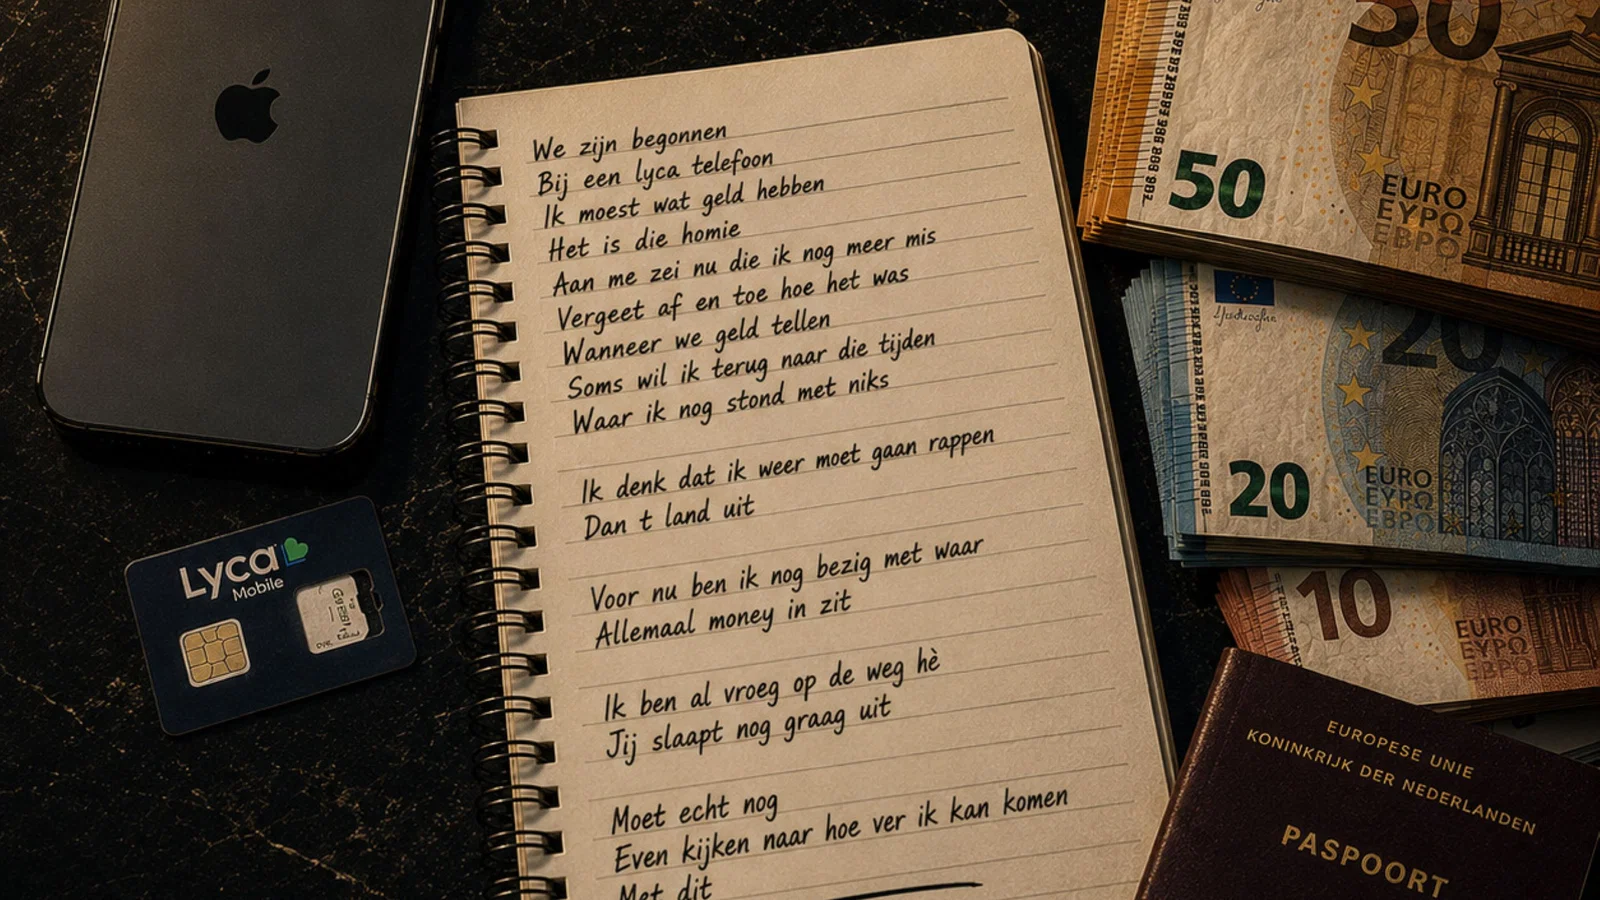 Lyca
Mobile
We zijn begonnen
Bij een lyca telefoon
Ik moest wat geld hebben
Het is die homie
Aan me zei nu die ik nog meer mis
Vergeet af en toe hoe het was
Wanneer we geld tellen
Soms wil ik terug naar die tijden
Waar ik nog stond met niks
Ik denk dat ik weer moet gaan rappen
Dan t land uit
Voor nu ben ik nog bezig met waar
Allemaal money in zit
Ik ben al vroeg op de weg hè
Jij slaapt nog graag uit
Moet echt nog
Even kijken naar hoe ver ik kan komen
Met dit
50
50
EURO
ΕΥΡΩ
ЕВРО
20
20
EURO
ΕΥΡΩ
ЕВРО
10
EURO
ΕΥΡΩ
ЕВРО
EUROPESE UNIE
KONINKRIJK DER NEDERLANDEN
PASPOORT